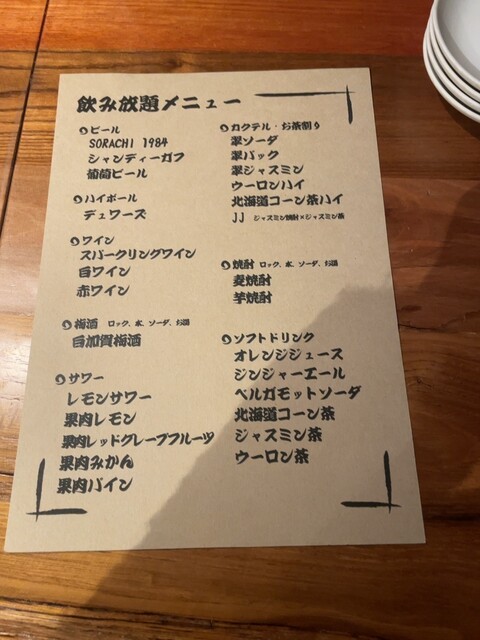 飲み放題メニュー
ビール
SORACHI 1984
シャンディーガフ
葡萄ビール
ハイボール
デュワーズ
ワイン
スパークリングワイン
白ワイン
赤ワイン
梅酒 ロック、水、ソーダ、お湯
白加賀梅酒
サワー
レモンサワー
果肉レモン
果肉レッドグレープフルーツ
果肉みかん
果肉パイン
カクテル・お茶割り
翠ソーダ
翠バック
翠ジャスミン
ウーロンハイ
北海道コーン茶ハイ
JJ ジャスミン焼酎×ジャスミン茶
焼酎 ロック、水、ソーダ、お湯
麦焼酎
芋焼酎
ソフトドリンク
オレンジジュース
ジンジャーエール
ベルガモットソーダ
北海道コーン茶
ジャスミン茶
ウーロン茶